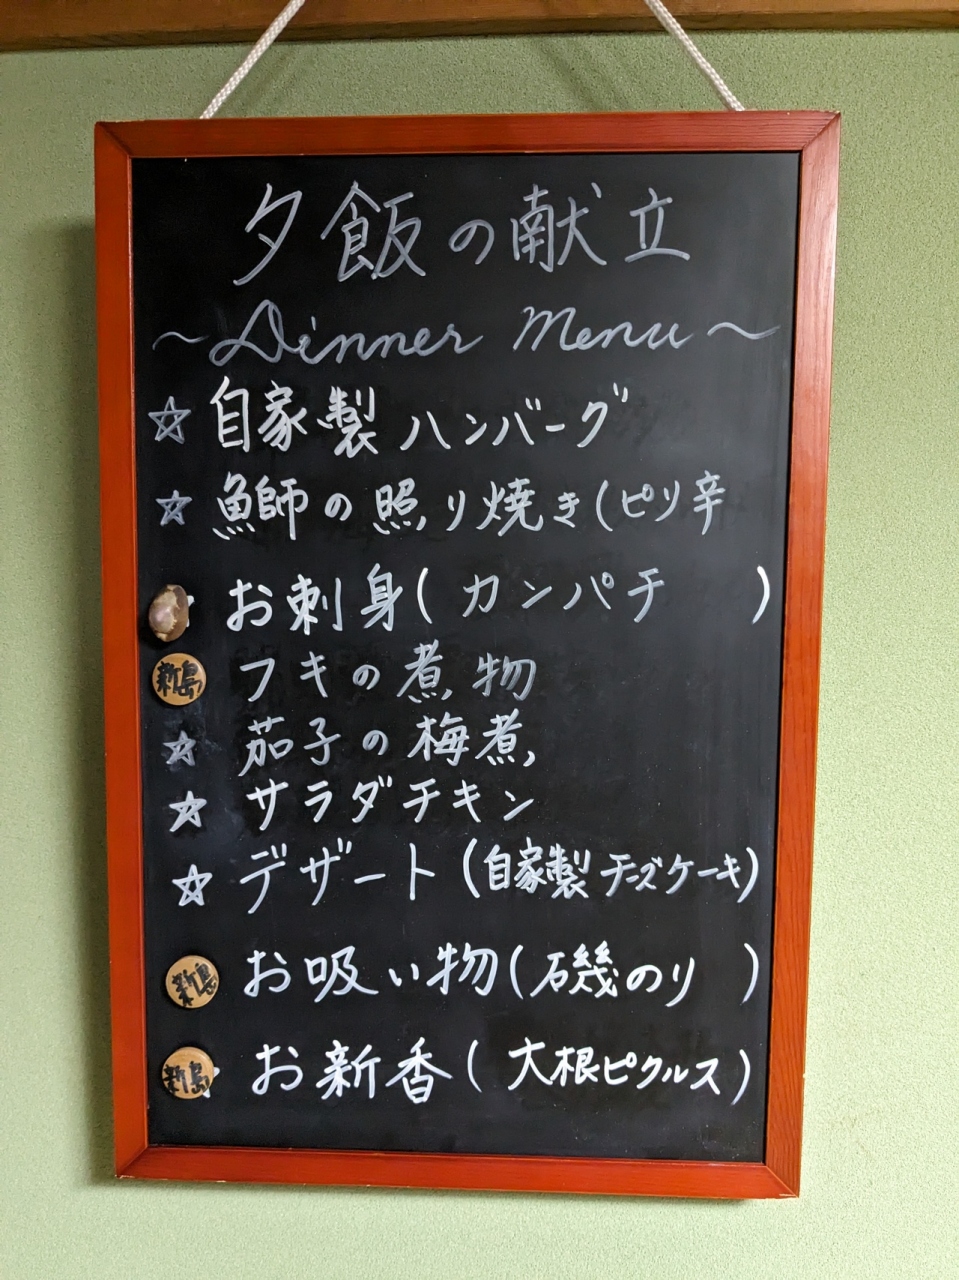 夕飯の献立
～Dinner Menu～
☆自家製ハンバーグ
☆鰤の照り焼き(ピリ辛
お刺身(カンパチ)
新島 フキの煮物
☆茄子の梅煮
☆サラダチキン
☆デザート(自家製チーズケーキ)
新島 お吸い物(磯のり)
新島 お新香(大根ピクルス)